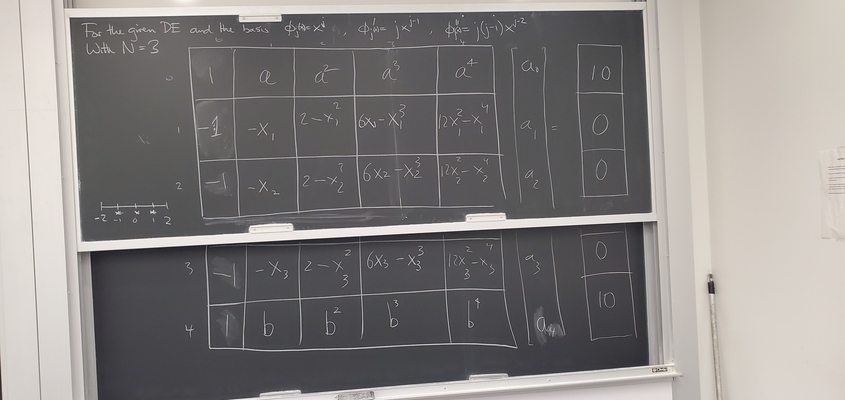 For the given DE and the basis ϕⱼ(x)=xʲ, ϕⱼ'(x)= jxʲ⁻¹, ϕⱼ''(x)= j(j-1)xʲ⁻²
With N=3
0 1 a a² a³ a⁴ a₀ 10
1 -1 -x₁ 2-x₁² 6x₁-x₁³ 12x₁²-x₁⁴ a₁ = 0
2 -1 -x₂ 2-x₂² 6x₂-x₂³ 12x₂²-x₂⁴ a₂ 0
-2 -1 0 1 2
3 -1 -x₃ 2-x₃² 6x₃-x₃³ 12x₃²-x₃⁴ a₃ 0
4 1 b b² b³ b⁴ a₄ 10